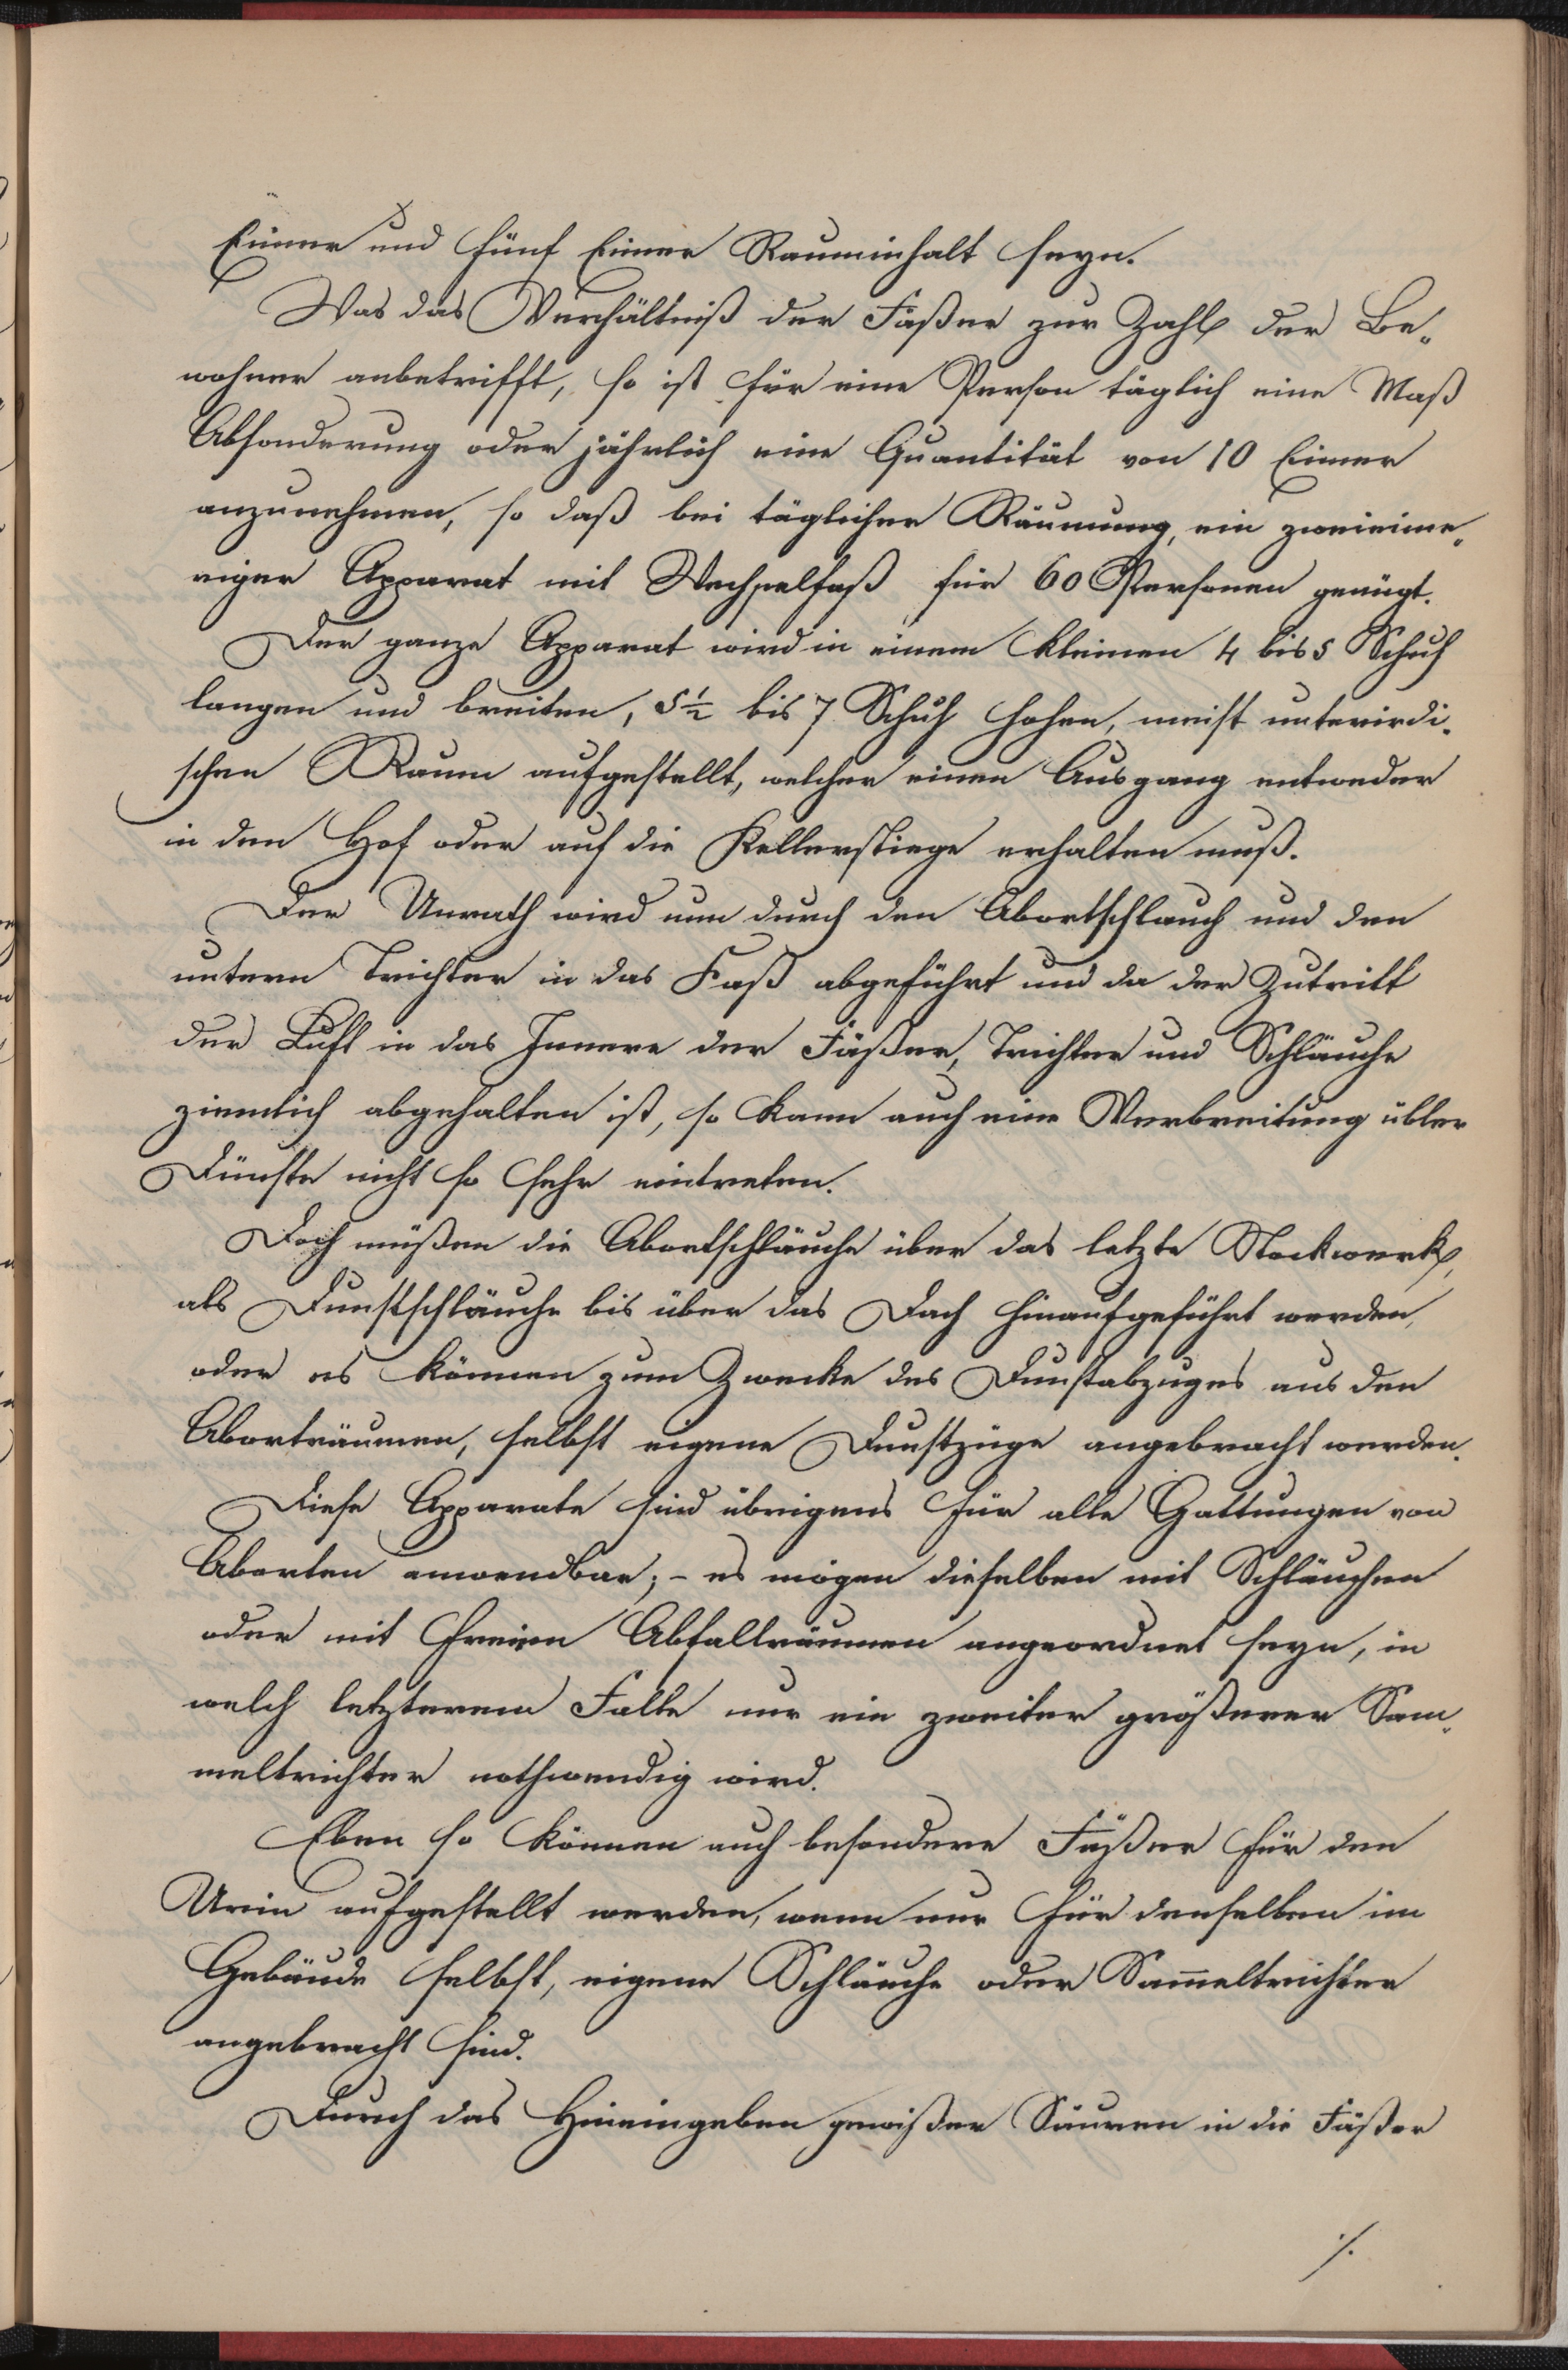 Eimer und fünf Eimer Rauminhalt seyn.
Was das Verhältniß der Fäßer zur Zahl der Be„
wohner anbetrifft, so ist für eine Person täglich eine Maß
Absonderung oder jährlich eine Quantität von 10 Eimer
anzunehmen, so daß bei täglicher Räumung, ein zweieime„
riger Apparat mit Wechselfaß für 60 Personen genügt.
Der ganze Apparat wird in einem kleinen 4 bis 5 Schuh
langen und breiten, 5½ bis 7 Schuh hohen, meist unterirdi„
schen Raum aufgestellt, welcher einen Ausgang entweder
in den Hof oder auf die Kellerstiege erhalten muß.
Der Unrath wird nun durch den Abortschlauch und den
untern Trichter in das Faß abgeführt und da der Zutritt
der Luft in das Innere der Fäßer, Trichter und Schläuche
ziemlich abgehalten ist, so kann auch eine Verbreitung übler
Dünste nicht so sehr eintreten.
Doch müßen die Abortschläuche über das letzte Stockwerk,
als Dunstschläuche bis über das Dach hinaufgeführt werden,
oder es können zum Zwecke des Dunstabzuges aus den
Aborträumen, selbst eigene Dunstzüge angebracht werden.
Diese Apparate sind übrigens für alle Gattungen von
Aborten anwendbar; – es mögen dieselben mit Schläuchen
oder mit freien Abfallräumen angeordnet seyn, in
welch letzterem Falle nur ein zweiter größerer Sam„
meltrichter nothwendig wird.
Eben so können auch besondere Fäßer für den
Urin aufgestellt werden, wenn nur für denselben im
Gebäude selbst, eigene Schläuche oder Sam̅eltrichter
angebracht sind.
Durch das Hineingeben gewißer Säuren in die Fäßer
⁒